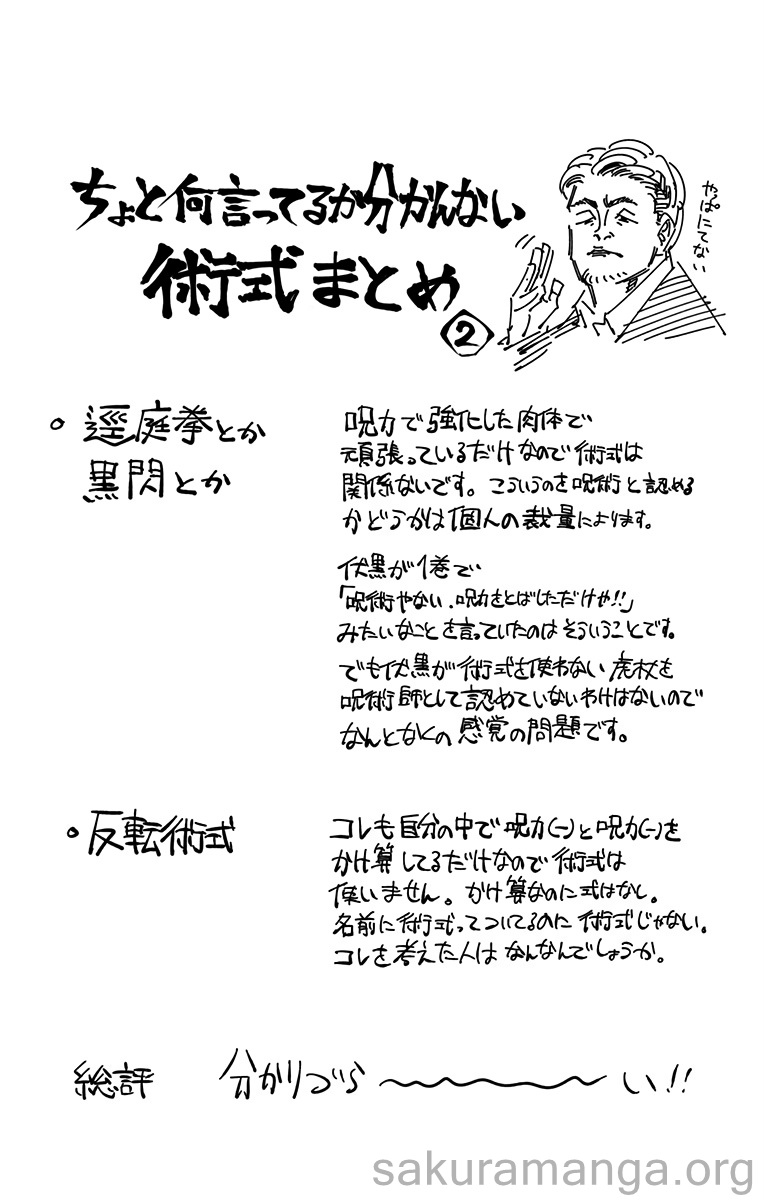 ちょと何言ってるか分かんない
術式まとめ
②
やっぱにてない
。逕庭拳とか
黒閃とか
呪力で強化した肉体で
頑張っているだけなので術式は
関係ないです。こういうのを呪術と認める
かどうかは個人の裁量によります。
伏黒が1巻で
「呪術やない.呪力をとばしただけや!!」
みたいなことを言っていたのはそういうことです。
でも伏黒が術式を使わない虎杖を
呪術師として認めていないわけはないので
なんとなくの感覚の問題です。
・反転術式
コレも自分の中で呪力(-)と呪力(-)を
かけ算してるだけなので術式は
使いません。かけ算なのに式はなし。
名前に術式ってついてるのに術式じゃない。
コレを考えた人はなんなんでしょうか。
総評 分かりづら〜〜〜い!!
sakuramanga.org